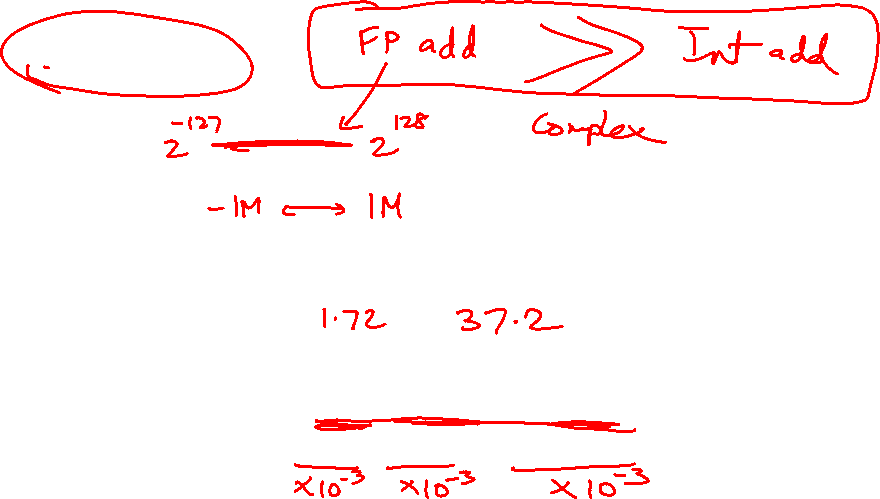 FP add >> Int add
Complex
2^-127 2^128
-1M ↔ 1M
1.72 37.2
×10^-3 ×10^-3 ×10^-3